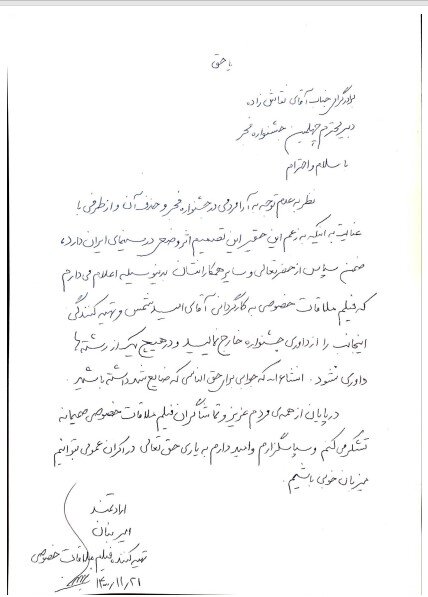 یا حق
برادر گرامی جناب آقای نقاش زاده
دبیر محترم چهلمین جشنواره فجر
با سلام و احترام
نظر به عدم توجه به آرا مردمی در جشنواره فجر و حذف آن و از طرفی با
عنایت به اینکه به زعم این حقیر این تصمیم اثر وضعی در سینمای ایران دارد،
ضمن سپاس از حضرتعالی و سایر همکارانتان بدینوسیله اعلام می دارم
که فیلم ملاقات خصوصی به کارگردانی آقای امید شمس و تهیه کنندگی
اینجانب را از داوری جشنواره خارج نمایید و در هیچ یک از رشته ها
داوری نشود. انشاءاله که جوابی برای حق الناسی که ضایع شد داشته باشید.
در پایان از همه ی مردم عزیز و تماشاگران فیلم ملاقات خصوصی صمیمانه
تشکر می کنم و سپاسگزارم و امید دارم به یاری حق تعالی در اکران عمومی بتوانیم
میزبان خوبی باشیم.
ارادتمند
امیر بنان
تهیه کننده فیلم ملاقات خصوصی
۱۴۰۰/۱۱/۲۱